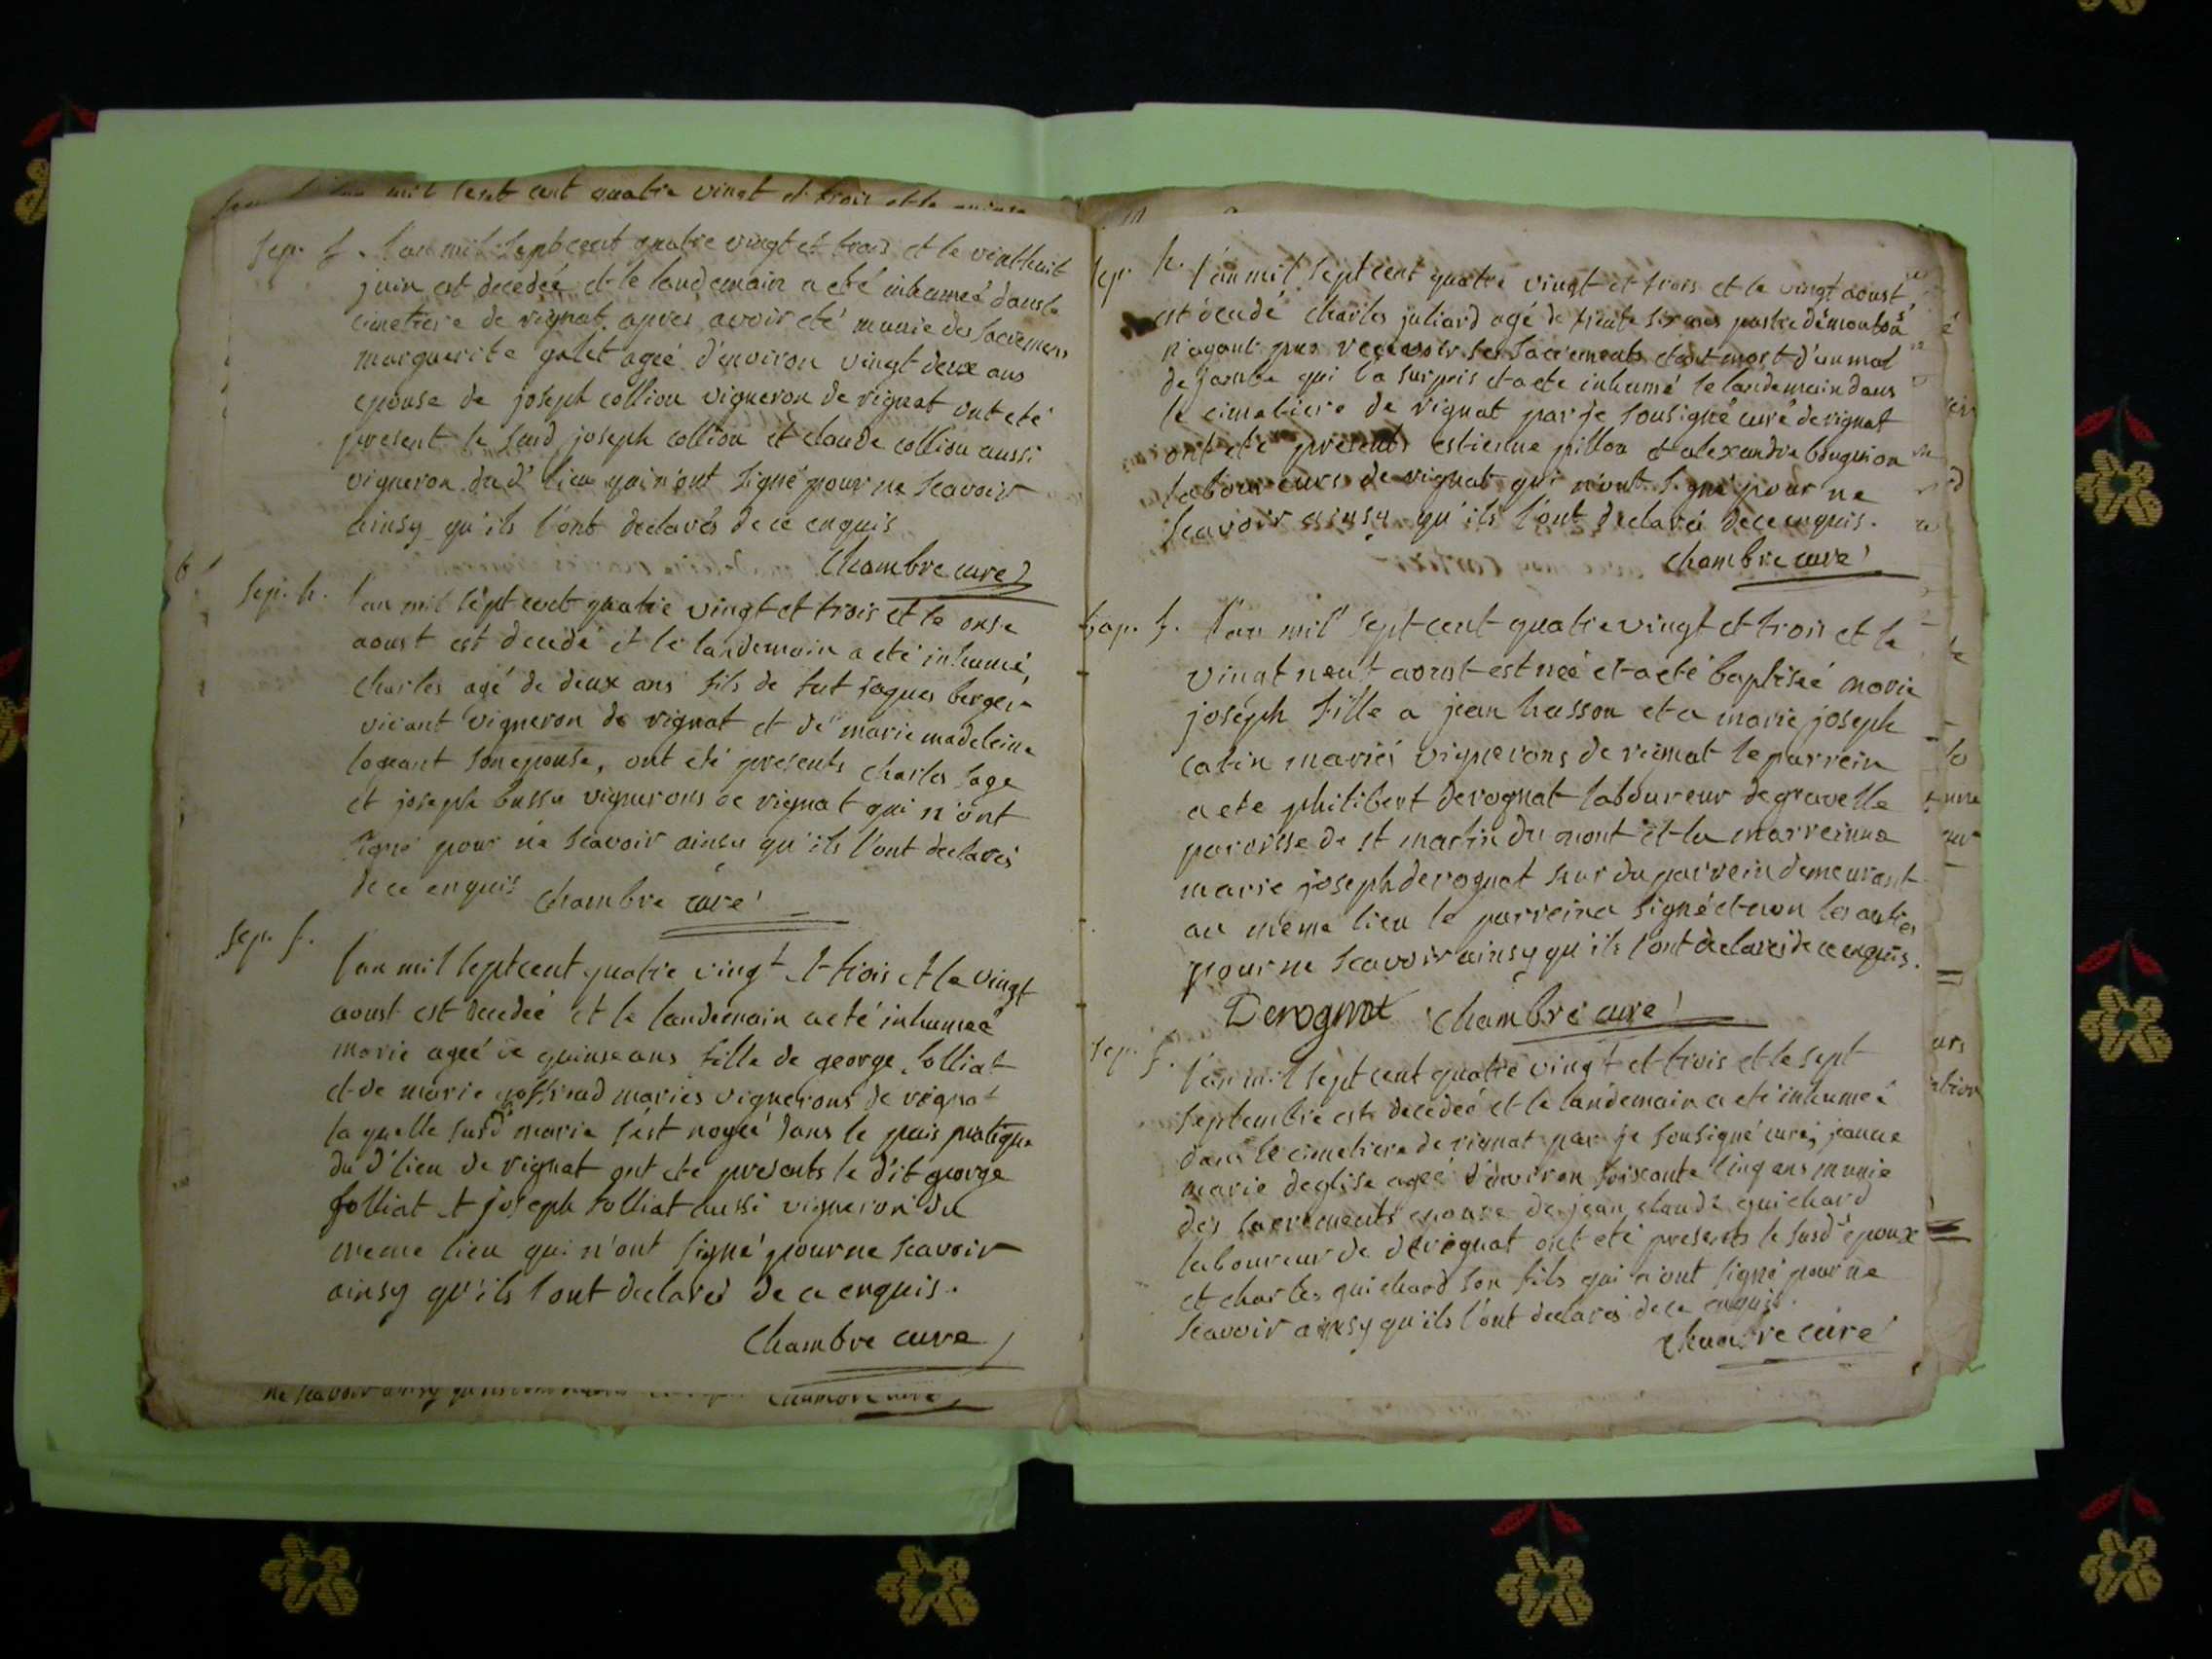 mil sept cent quatre vingt et trois et le quinse
sep. f. l'an mil sept cent quatre vingt et trois et le vinthuit
juin est decedeé et le landemain a eté inhumeé dans le
cimetiere de rignat apres avoir eté munie des sacremens
marguerite galet ageé d'environ vingt deux ans
epouse de joseph collion vigneron de rignat ont eté
present le susd joseph collion et claude collion aussi
vigneron dud' lieu qui n'ont signé pour ne scavoir
ainsy qu'ils l'ont declarés de ce enquis
Chambre curé
sep. h. l'an mil sept cent quatre vingt et trois et le onse
aoust est decedé et le landemain a eté inhumé,
Charles agé de deux ans fils de fut jaques berger
vivant vigneron de rignat et de marie madeleine
son epouse, ont eté presents charles sage
et joseph vignerons de rignat qui n'ont
signé pour ne scavoir ainsy qu'ils l'ont declarés
de ce enquis Chambre curé
sep. f.
l'an mil sept cent quatre vingt et trois et le vingt
aoust est decedeé et le landemain a eté inhumeé
marie ageé de quinse ans fille de george folliat
et de marie mariés vignerons de rignat
la quelle susd marie s'est noyeé dans le puis
du d'lieu de rignat ont eté presents le d'it george
folliat et joseph folliat aussi vigneron du
meme lieu qui n'ont signé pour ne scavoir
ainsy qu'ils l'ont declarés de ce enquis.
Chambre cure
ne scavoir ainsy Chambre curé
sep. h. l'an mil sept cent quatre vingt et trois et le vingt aoust
est decedé charles juliard agé de trente six ans de moutons
n'ayant pus recevoir ses sacrements etant mort d'un mal
de jambe qui l'a surpris et a eté inhumé le landemain dans
le cimetiere de rignat par je sousigné curé de rignat
ont eté presents estienne pillon et alexandre
laboureurs de rignat qui n'ont signé pour ne
scavoir ainsy qu'ils l'ont declaré de ce enquis.
Chambre curé
bap. f. l'an mil sept cent quatre vingt et trois et le
vingt neuf aoust est neé et a eté baptiseé marie
joseph fille a jean husson et a marie joseph
catin mariés vignerons de rignat le parrein
a eté philibert derognat laboureur de gravelle
paroisse de st martin du mont et la marreinne
marie joseph derognat seur du parrein demeurant
au meme lieu le parrein a signé et non les autres
pour ne scavoir ainsy qu'ils l'ont declarés de ce enquis.
Derognat Chambre curé
sep. f.
l'an mil sept cent quatre vingt et trois et le sept
septembre est decedeé et le landemain a eté inhumeé
dans le cimetiere de rignat par je sousigné curé, jeanne
marie deglise ageé d'environ soiscante cinq ans munie
des sacrements epouse de jean claude guichard
laboureur de de rignat ont eté presents le susd époux
et charles guichard son fils qui n'ont signé pour ne
scavoir ainsy qu'ils l'ont declarés de ce enquis.
Chambre curé